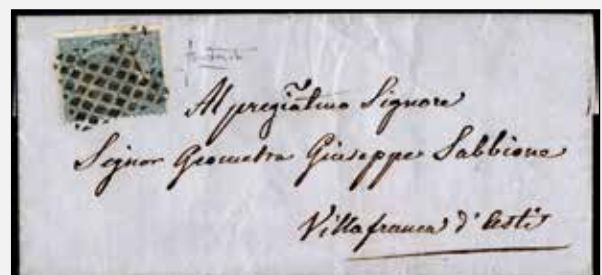 Al pregiat.mo Signore
Signor Geometra Giuseppe Sabbione
Villafranca d'Asti